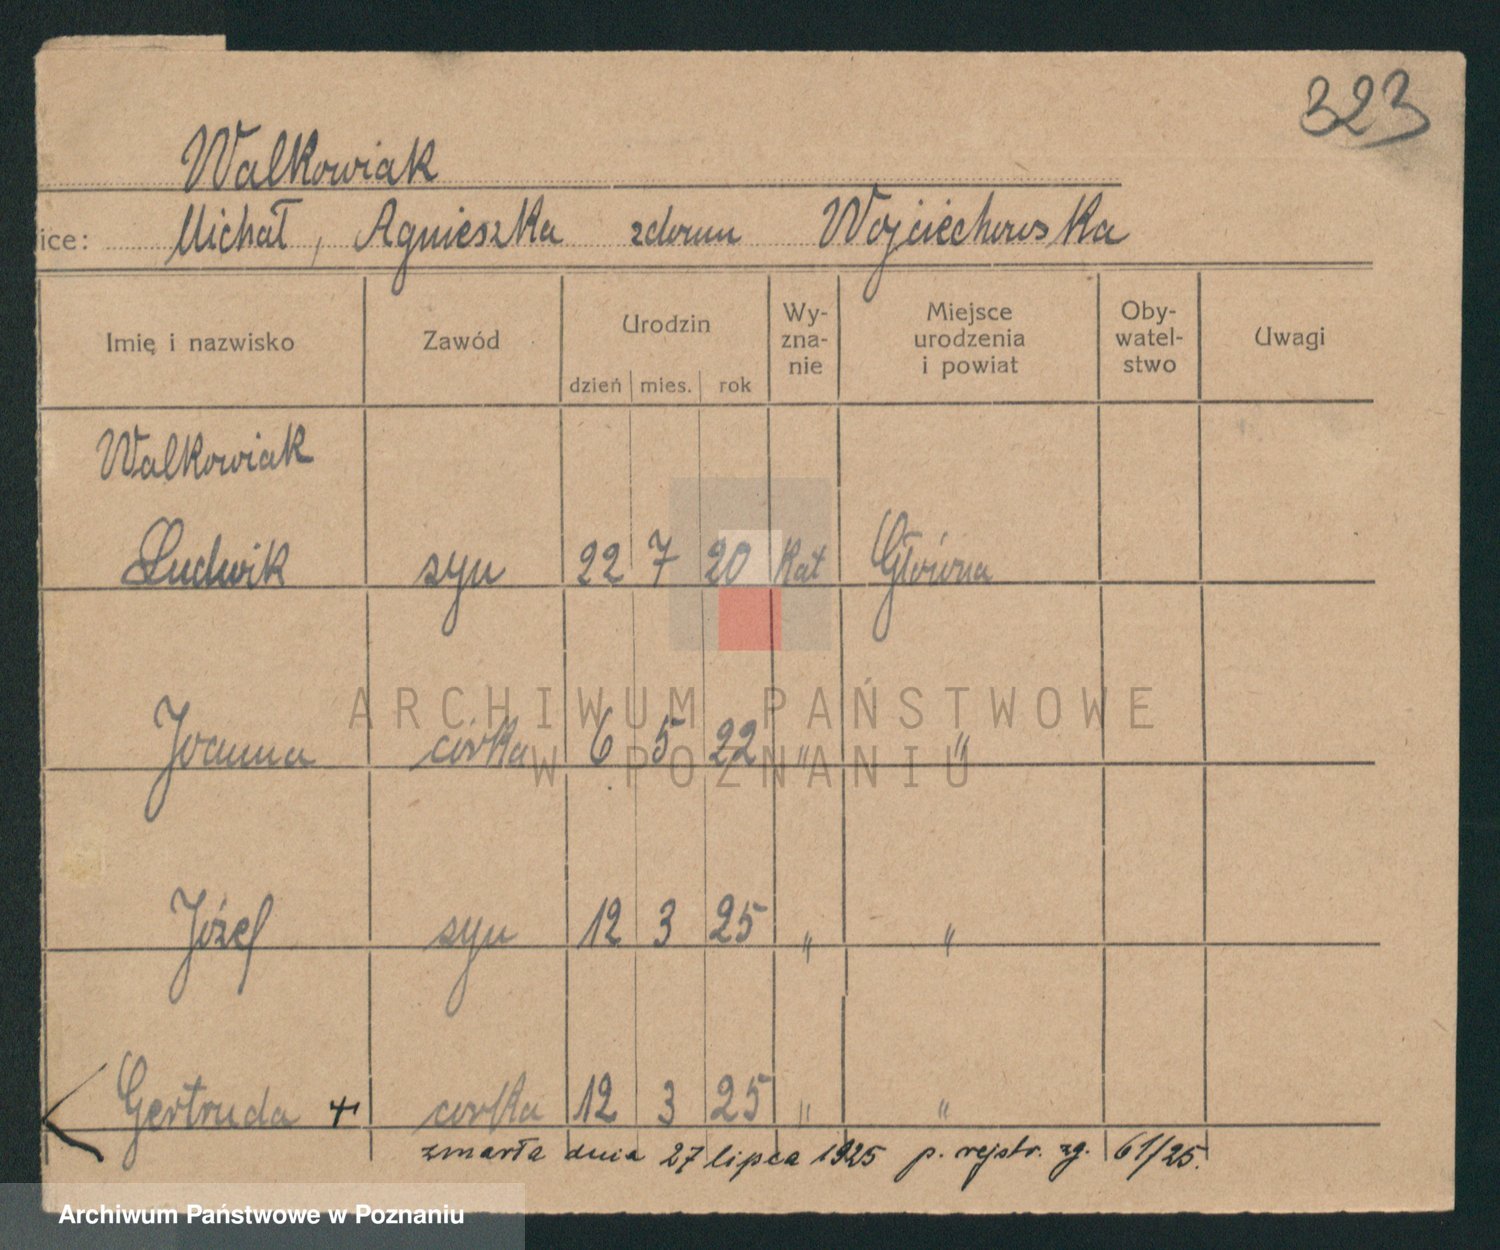 323
Walkowiak
ice: Michał, Agnieszka zdomu Wojciechowska
Imię i nazwisko Zawód Urodzin dzień mies. rok Wy-zna-nie Miejsce urodzenia i powiat Oby-watel-stwo Uwagi
Walkowiak
Ludwik syn 22 7 20 kat Główna
Joanna córka 6 5 22 " "
Józef syn 12 3 25 " "
Gertruda + córka 12 3 25 " "
zmarła dnia 27 lipca 1925 p. rejstr. zg. 61/25.
ARCHIWUM PAŃSTWOWE
W POZNANIU
Archiwum Państwowe w Poznaniu